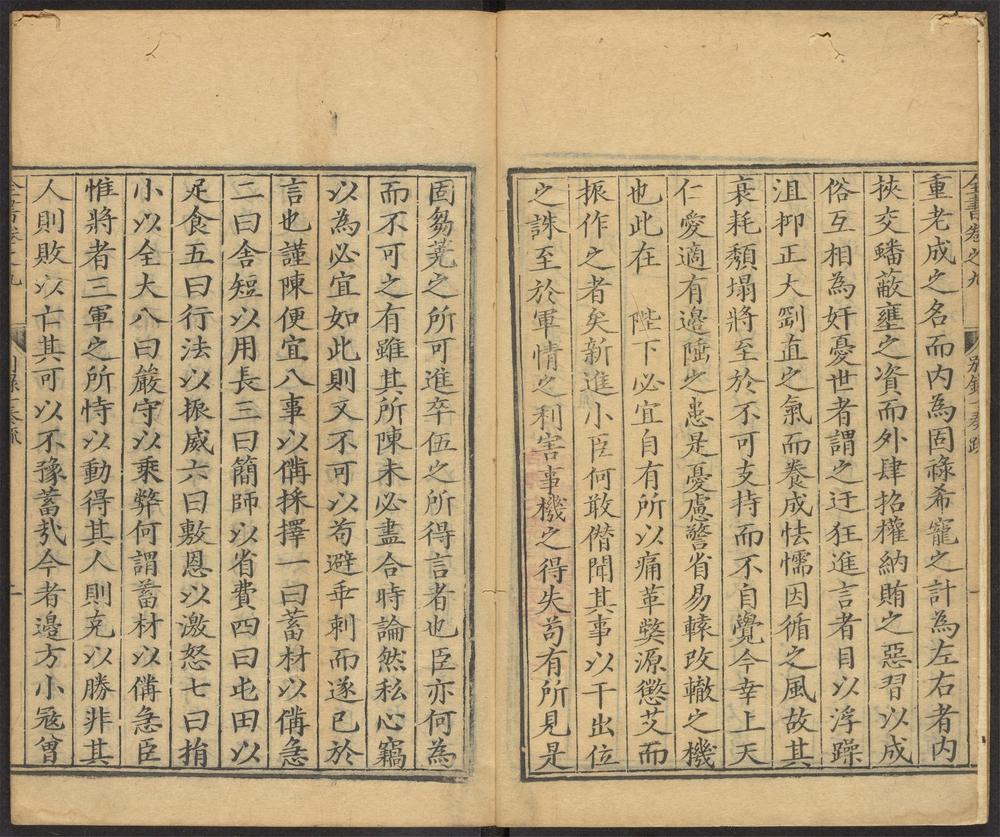 全書卷之九
別錄一奏疏
重老成之名而内為固祿希寵之計為左右者内
挾交蟠蔽壅之資而外肆招權納賄之惡習以成
俗互相為奸憂世者謂之迂狂進言者目以浮躁
沮抑正大剛直之氣而養成怯懦因循之風故其
衰耗頽塌將至於不可支持而不自覺今幸上天
仁愛適有邊陲之患是憂慮警省易轅改轍之機
也此在　陛下必宜自有所以痛革獘源懲艾而
振作之者矣新進小臣何敢僭聞其事以干出位
之誅至於軍情之利害事機之得失苟有所見是
固芻蕘之所可進卒伍之所得言者也臣亦何為
而不可之有雖其所陳未必盡合時論然私心竊
以為必宜如此則又不可以苟避乖剌而遂已於
言也謹陳便宜八事以備採擇一曰蓄材以備急
二曰舍短以用長三曰簡師以省費四曰屯田以
足食五曰行法以振威六曰敷恩以激怒七曰捐
小以全大八曰嚴守以乘弊何謂蓄材以備急臣
惟將者三軍之所恃以動得其人則克以勝非其
人則敗以亡其可以不豫蓄㦲今者邊方小寇曾